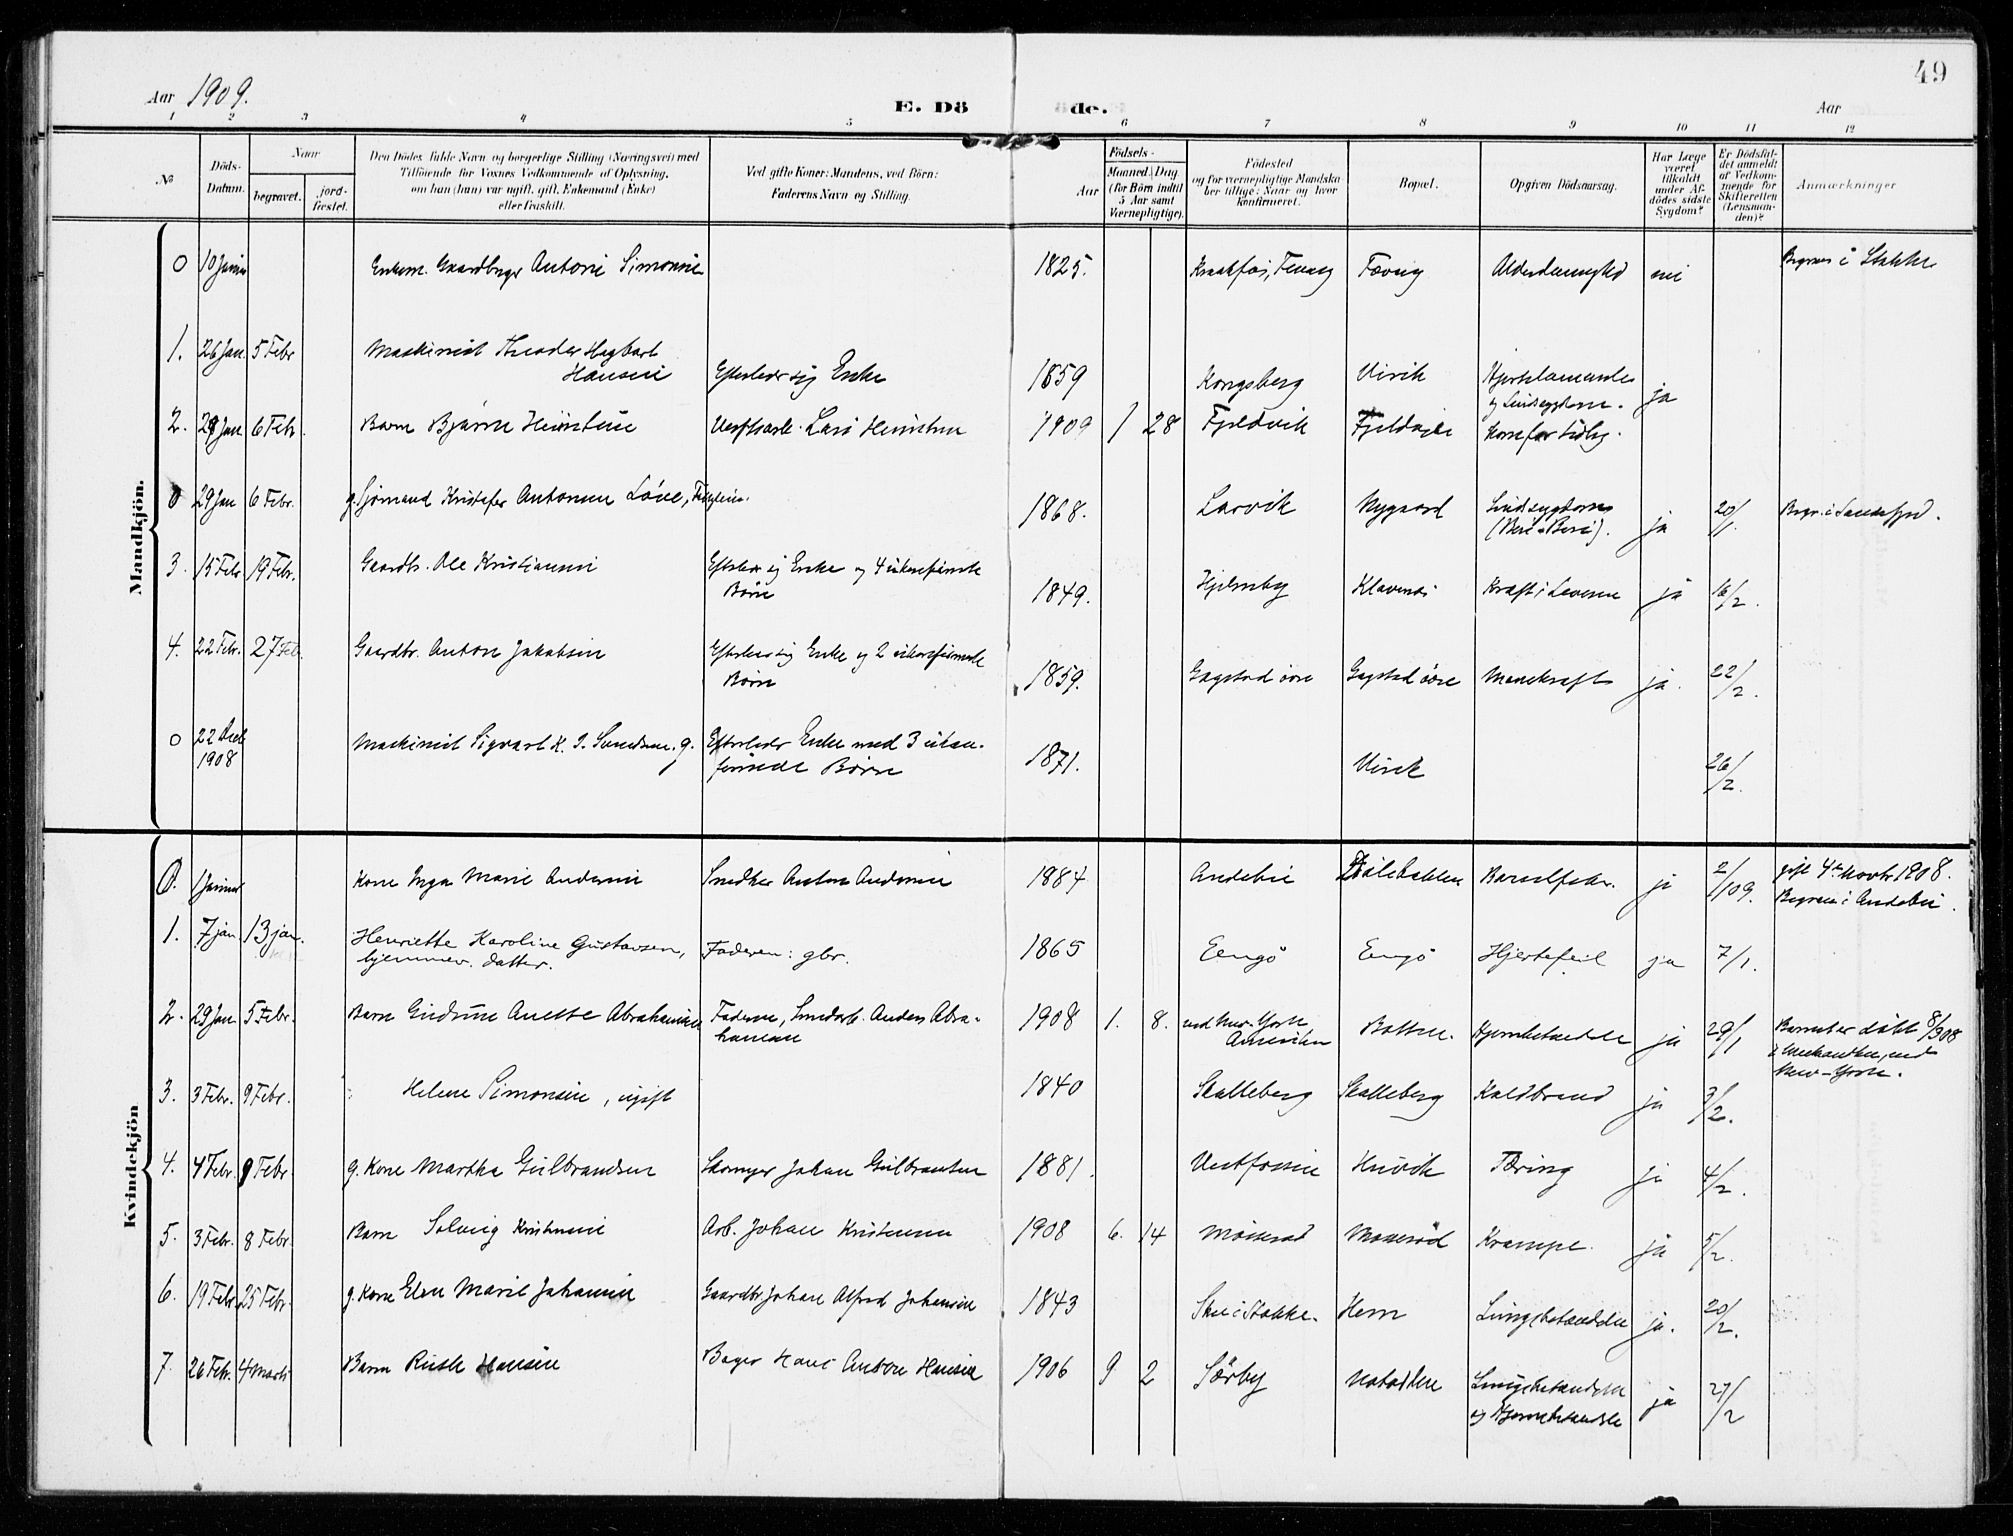 49
Aar 1909.
E. Dö de.
Aar
1 2 3 4 5 6 7 8 9 10 11 12
№
Döds-Datum.
Naar
begravet.
jord-fæstet.
Den Dödes fulde Navn og borgerlige Stilling (Næringsvei) med
Tilföiende for Voxnes Vedkommende af Oplysning,
om han (hun) var ugift, gift, Enkemand (Enke)
eller fraskilt.
Ved gifte Koner: Mandens, ved Börn:
Faderens Navn og Stilling.
Födsels-
Aar
Maaned. Dag
(for Börn indtil
5 Aar samt
Værnepligtige).
Födested
og for værnepligtige Mandska-
ber tillige: Naar og hvor
konfirmeret.
Bopæl.
Opgiven Dödsaarsag.
Har Læge
været
tilkaldt
under Af-
dödes sidste
Sygdom?
Er Dödsfal-
det anmeldt
af Vedkom-
mende for
Skifteretten
(Lensman-
den)?
Anmærkninger
Mandkjön.
0 10 Januar Enkem. Gaardbruger Anton Simonsen 1825. Tevang Alderdomssvaghed nei Begraves i Stokke
1. 26 Jan. 5 Febr Maskinist Theodor Hagbart
Hansen Efterlader sig Enke 1859 Kongsberg Virik
og Sindssygdom. ja
2. 6 Febr. Barn Bjarne Lars 1909 1 28 Fjeldvik
0 29 Jan 6 Febr. g. Sjömand Kristofer Antonsen 1868. Larvik Nygaard Sindssygdom
(Beri-Beri). ja 20/1. Begr. i Sandefjord.
3. 15 Febr 19 Febr. Gaardbr. Ole Kristiansen Efterlader sig Enke og 4 ukonfirmerte
Börn 1849. Hjelmby Klavenes Kræft i Leveren ja 16/2.
4. 22 Febr. 27 Febr. Gaardbr. Anton Jakobsen Efterlader sig Enke og 2 ukonfirmerte
Börn 1859. Gogstad övre Gogstad övre Mavekræft ja. 22/2.
0 22 Decb
1908 Maskinist Sigvart K. S. Svendsen. g. Efterlader Enke med 3 ukon-
firmede Börn 1871. Virik 26/2.
Kvindekjön
0. 1 Januar Kone Inga Marie Andersen Snedker Anton Andersen 1884 Andebu Barselfeber. ja 2/1 09. gift 4de Novbr 1908.
Begraves i Andebu.
1. 7 jan. 13 jan. Henriette Karoline Gustavsen,
hjemmev. datter. Faderen: gbr. 1865 Eengö Eengö Hjertefeil ja 7/1.
2. 29 Jan. 5 Febr. Barn Gudrun Anette Abrahamsen Faderen, Anders Abra-
hamsen 1908 1. 8. ved New-York,
Amerika Hjernebetændelse ja 29/1 Barnet er döbt 8/3 08
New-York.
3. 3 Febr. 9 Febr. Helene Simonsen, ugift 1840 Skalleberg Skalleberg Koldbrand ja 3/2.
4. 4 Febr. 9 Febr g. Kone Martha Gulbrandsen Skomager Johan Gulbrandsen 1881. Vestfossen Huvik Tæring ja 4/2.
5. 3 Febr. 8 Febr. Barn Solveig Kristensen Arb. Johan Kristensen 1908 6. 14 Moseröd Krampe. ja 5/2.
6. 19 Febr. 25 Febr. g. Kone Elen Marie Johansen Gaardbr Johan Alfred Johansen 1843 Skue i Stokke. Hem Lungebetændelse ja. 20/2.
7. 26 Febr. 4 Marts Barn Ruth Hansen Bager Hans Anton Hansen 1906 9 2 Sörby Lungebetændelse
og Hjernebetændelse ja 27/2